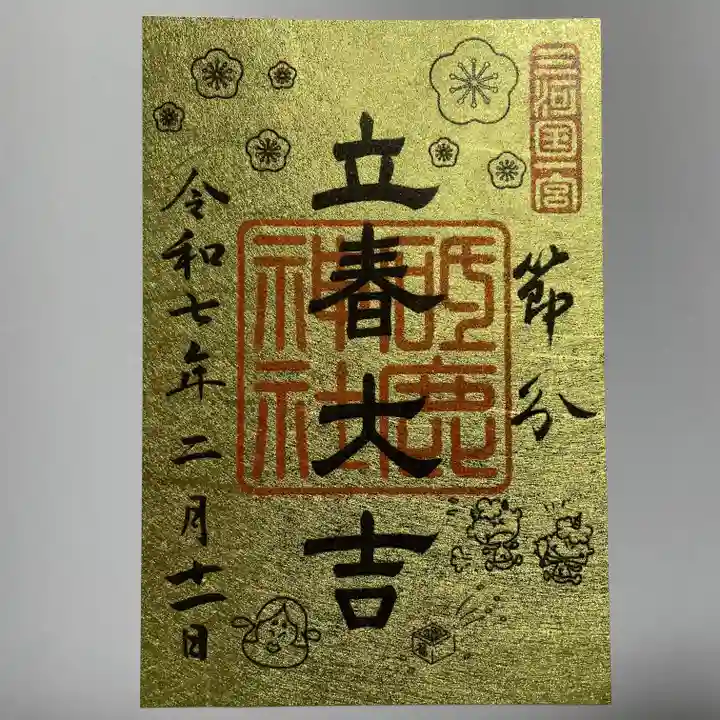 三河国一宮
節分
立春大吉
砥鹿神社
令和七年二月十一日